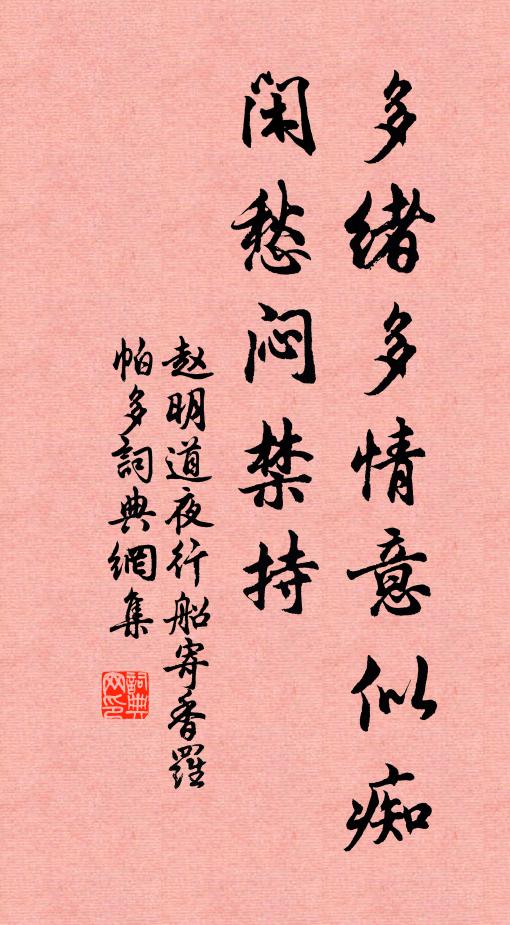 多绪多情意似痴
闲愁闷禁持
赵明道夜行船寄香羅
帕多詞典網集
詞典
网印